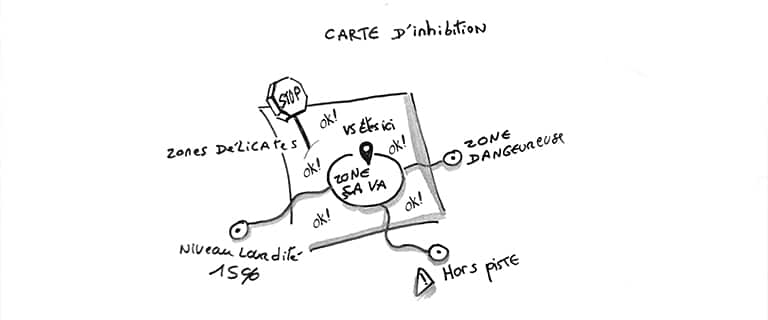 CARTE D'inhibition
STOP
OK!
VS ÊTES ici
OK!
ZONE
DANGEUREUSE
ZONES DÉLICATES
OK!
ZONE
ÇA VA
OK!
OK!
NIVEAU Lourdite
15%
Hors PISTE